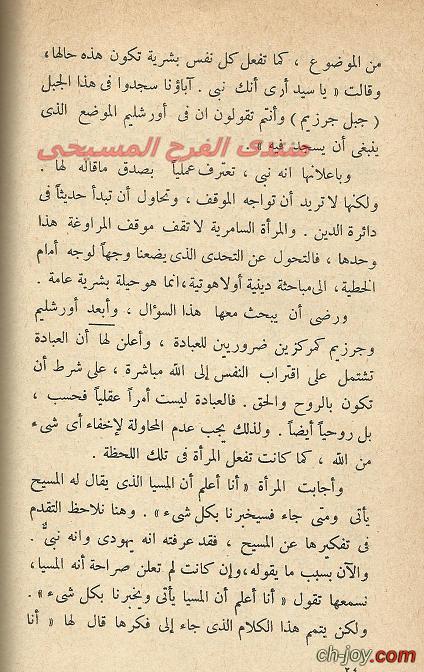 من الموضوع ، كما تفعل كل نفس بشرية تكون هذه حالها،
وقالت « يا سيد أرى أنك نبى . آباؤنا سجدوا فى هذا الجبل
( جبل جرزيم ) وأنتم تقولون ان فى أورشليم الموضع الذى
ينبغى أن يسجد فيه » .
منتدى الفرح المسيحى
وباعلانها انه نبى ، تعترف عملياً بصدق ماقاله لها .
ولكنها لا تريد أن تواجه الموقف ، وتحاول أن تبدأ حديثاً فى
دائرة الدين . والمرأة السامرية لا تقف موقف المراوغة هذا
وحدها ، فالتحول عن التحدى الذى يضعنا وجهاً لوجه أمام
الخطية، الى مباحثة دينية أولاهوتية، انما هو حيلة بشرية عامة .
ورضى أن يبحث معها هذا السؤال ، وأبعد أورشليم
وجرزيم كمركزين ضروريين للعبادة ، وأعلن لها أن العبادة
تشتمل على اقتراب النفس إلى الله مباشرة ، على شرط أن
تكون بالروح والحق . فالعبادة ليست أمراً عقلياً فحسب ،
بل روحياً أيضاً . ولذلك يجب عدم المحاولة لإخفاء أى شىء
من الله ، كما كانت تفعل المرأة فى تلك اللحظة .
وأجابت المرأة « أنا أعلم أن المسيا الذى يقال له المسيح
يأتى ومتى جاء فسيخبرنا بكل شىء » . وهنا نلاحظ التقدم
فى تفكيرها عن المسيح ، فقد عرفته انه يهودى وانه نبىٌّ .
والآن بسبب ما يقوله، وإن كانت لم تعلن صراحة أنه المسيا،
نسمعها تقول « أنا أعلم أن المسيا يأتى ويخبرنا بكل شىء» .
ولكن يتمم هذا الكلام الذى جاء إلى فكرها قال لها « أنا
ch-joy.com